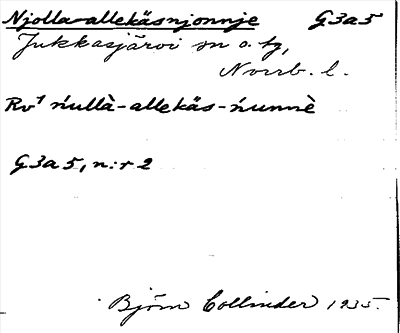 Njolla-allekäsnjonnje G3a5
Jukkasjärvi sn o. tg,
Norrb. l.
Rv¹ ńullà-allekäs-ńunnè
G3a5, n:r 2
Björn Collinder 1935.